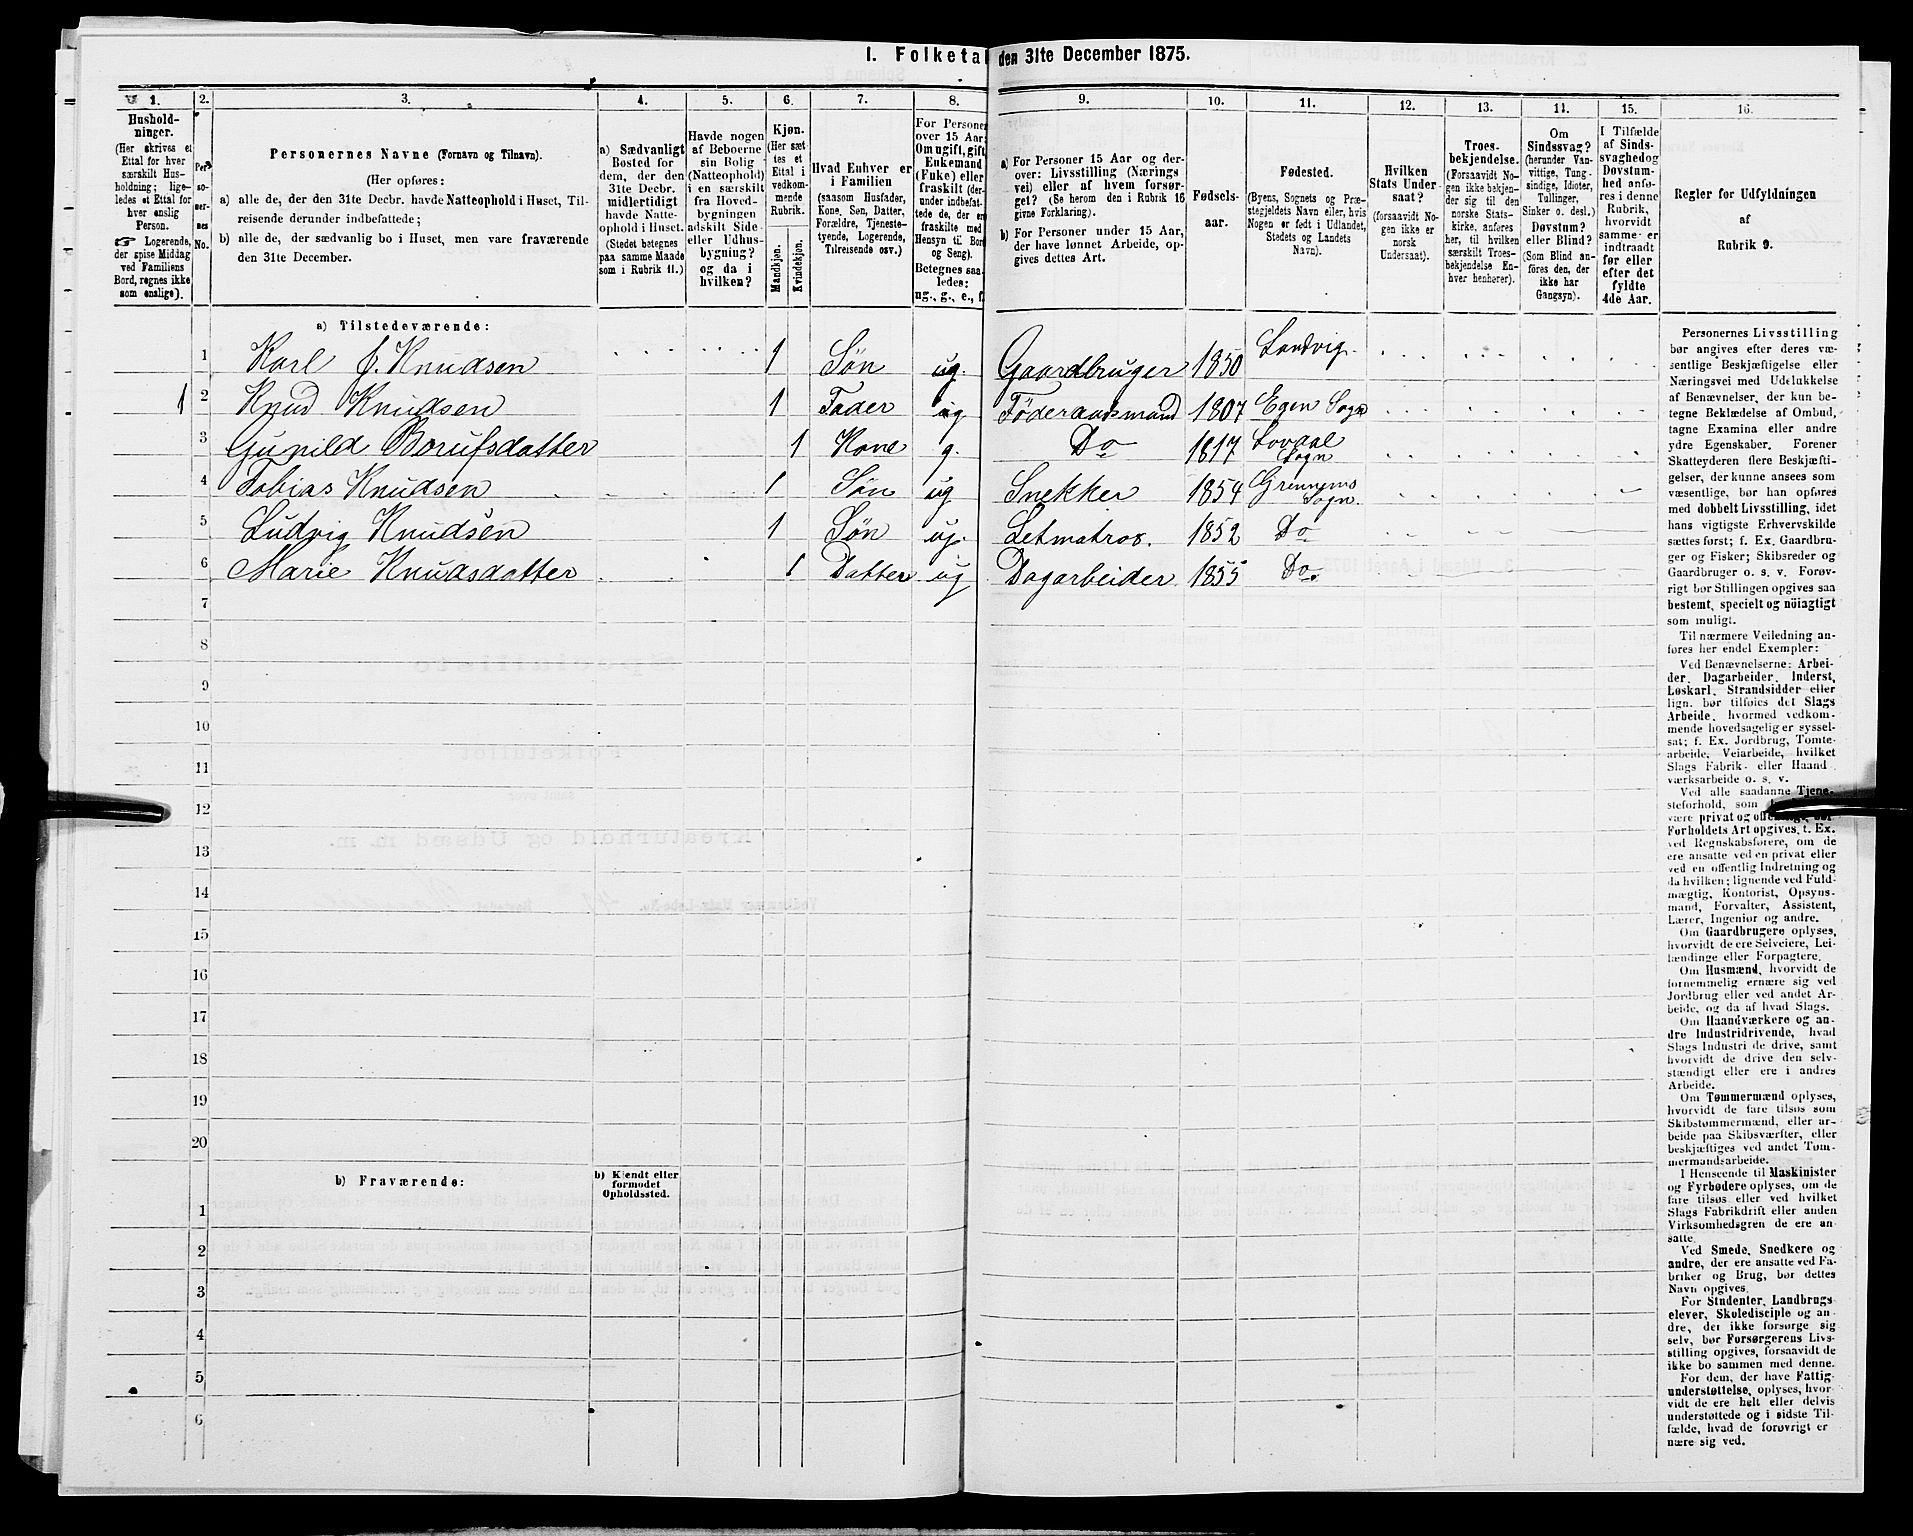 1. Folketal den 31te December 1875.
1. 2. 3. 4. 5. 6. 7. 8. 9. 10. 11. 12. 13. 14. 15. 16.
Hushold-
ninger.
(Her skrives et
Ettal for hver
særskilt Hus-
holdning; lige-
ledes et Ettal for
hver enslig
Person.
☞ Logerende,
der spise Middag
ved Familiens
Bord, regnes ikke
som enslige).
Per-
so-
ner-
nes
No.
Personernes Navne (Fornavn og Tilnavn).
(Her opføres:
a) alle de, der den 31te Decbr. havde Natteophold i Huset, Til-
reisende derunder indbefattede;
b) alle de, der sædvanlig bo i Huset, men vare fraværende
den 31te December.
a) Sædvanligt
Bosted for
dem, der den
31te Decbr.
midlertidigt
havde Natte-
ophold i Huset.
(Stedet betegnes
paa samme Maade
som i Rubrik 11.)
Havde nogen
af Beboerne
sin Bolig
(Natteophold)
i en særskilt
fra Hoved-
bygningen
adskilt Side-
eller Udhus-
bygning?
og da i
hvilken?
Kjøn.
(Her sæt-
tes et
Ettal i
vedkom-
mende
Rubrik.
Mandkjøn.
Kvindekjøn.
Hvad Enhver er
i Familien
(saasom Husfader,
Kone, Søn, Datter,
Forældre, Tjeneste-
tyende, Logerende,
Tilreisende osv.)
For Personer
over 15 Aar:
Om ugift, gift,
Enkemand
(Fuke) eller
fraskilt (der-
under indbefat-
tede de, der ere
fraskilte med
Hensyn til Bord
og Seng).
Betegnes saa-
ledes:
ug., g., e., f.
a) For Personer 15 Aar og der-
over: Livsstilling (Nærings-
vei) eller af hvem forsør-
get? (Se herom den i Rubrik 16
givne Forklaring).
b) For Personer under 15 Aar,
der have lønnet Arbeide, op-
gives dettes Art.
Fødsels-
aar.
Fødested.
(Byens, Sognets og Præ-
stegjeldets Navn eller, hvis
Nogen er født i Udlandet,
Stedets og Landets
Navn).
Hvilken
Stats Under-
saat?
(forsaavidt No-
gen ikke er
norsk
Undersaat).
Troes-
bekjendelse.
(Forsaavidt No-
gen ikke bekjen-
der sig til den
norske Stats-
kirke, anføres
her, til hvilken
særskilt Troes-
bekjendelse En-
hver henhører).
Om
Sindssvag?
(herunder Van-
vittige, Tung-
sindige, Idioter,
Tullinger,
Sinker o. desl.)
Døvstum?
eller Blind?
(Som Blind an-
føres den, der
ikke har
Gangsyn).
I Tilfælde
af Sinds-
svaghed og
Døvstum-
hed anfø-
res i denne
Rubrik,
hvorvidt
samme er
indtraadt
før eller
efter det
fyldte
4de Aar.
Regler for Udfyldningen
af
Rubrik 9.
a) Tilstedeværende:
1 Karl J. Knudsen 1 Søn ug. Gaardbruger 1850 Landvig.
1 2 Knud Knudsen 1 Fader ug Föderaadsmand 1807 Egen Sogn
3 Gunild Borufsdatter 1 Kone g. Do 1817 Lovaal Sogn
4 Tobias Knudsen 1 Søn ug Snekker 1854 Sogn.
5 Ludvig Knudsen 1 Søn ug. Letmatros. 1852 Do
6 Marie Knudsdatter 1 Datter ug Dagarbeider 1855 Do.
7
8
9
10
11
12
13
14
15
16
17
18
19
20
b) Fraværende:
b) Kjendt eller
formodet
Opholdssted.
1
2
3
4
5
6
Personernes Livsstilling
bør angives efter deres væ-
sentlige Beskjæftigelse eller
Næringsvei med Udelukkelse
af Benævnelser, der kun be-
tegne Beklædelse af Ombud,
tagne Examina eller andre
ydre Egenskaber. Forener
Skatteyderen flere Beskjæfti-
gelser, der kunne ansees som
væsentlige, bør han opføres
med dobbelt Livsstilling, idet
hans vigtigste Erhvervskilde
sættes først; f. Ex. Gaardbru-
ger og Fisker; Skibsreder og
Gaardbruger o. s. v. Forøv-
rigt bør Stillingen opgives saa
bestemt, specielt og nöiagtigt
som muligt.
Til nærmere Veiledning an-
føres her endel Exempler:
Ved Benævnelserne: Arbei-
der, Dagarbeider, Inderst,
Løskarl, Strandsidder eller
lign. bør tilføies det Slags
Arbeide, hvormed vedkom-
mende hovedsagelig er syssel-
sat; f. Ex. Jordbrug, Tomte-
arbeide, Veiarbeide, hvilket
Slags Fabrik- eller Haand-
værksarbeide o. s. v.
Ved alle saadanne Tjene-
steforhold, som
være privat og
Forholdets Art opgives, t. Ex.
ved Regnskabsførere, om de
ere ansatte ved en privat eller
ved en offentlig Indretning og
da hvilken; lignende ved Fuld-
mægtig, Kontorist, Opsyns-
mand, Forvalter, Assistent,
Lærer, Ingenior og andre.
Om Gaardbrugere oplyses,
hvorvidt de ere Selveiere, Lei-
lændinge eller Forpagtere.
Om Husmænd, hvorvidt de
fornemmelig ernære sig ved
Jordbrug eller ved andet Ar-
beide, og da af hvad Slags.
Om Haandværkere og an-
dre Industridrivende, hvad
Slags Industri de drive, samt
hvorvidt de drive den selv-
stændigt eller ere i andres
Arbeide.
Om Tømmermænd oplyses,
hvorvidt de fare tilsøs som
Skibstømmermænd, eller ar-
beide paa Skibsværfter, eller
beskjæftiges ved andet Tøm-
mermandsarbeide.
I Henseende til Maskinister
og Fyrbødere oplyses, om de
fare tilsøs eller ved hvilket
Slags Fabrikdrift eller anden
Virksomhedsgren de ere an-
satte.
Ved Smede, Snedkere og
andre, der ere ansatte ved Fa-
briker og Brug, bør dettes
Navn opgives.
For Studenter, Landbrugs-
elever, Skoledisciple og an-
dre, der ikke forsørge sig
selv, bør Forsørgerens Livs-
stilling opgives, forsaavidt de
ikke bo sammen med denne.
For dem, der have Fattig-
understøttelse, oplyses, hvor-
vidt de ere helt eller delvis
understøttede og i sidste Til-
fælde, hvad de forøvrigt er-
nære sig ved.